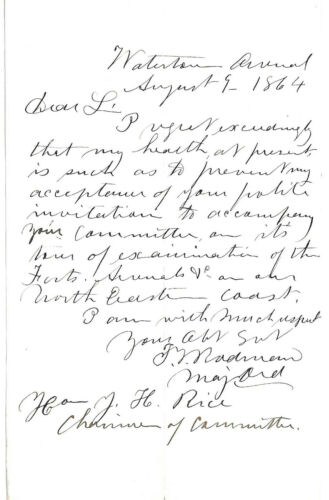 Watertown Arsenal
August 9 - 1864
Dear Sir.
I regret exceedingly
that my health, at present,
is such as to prevent my
acceptance of your polite
invitation to accompany
your Committee, on its
tour of examination of the
Forts, Arsenals &c on our
North Eastern coast.
I am with much respect
Your Obt Svt
T. J. Rodman
Maj Ord
Hon J. H. Rice
Chairman of Committee.